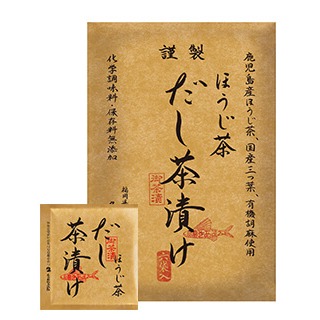 謹製
鹿児島産ほうじ茶、国産三つ葉、有機胡麻使用
ほうじ茶
だし茶漬け
御茶漬
化学調味料・保存料無添加
六袋入
ほうじ茶
だし
茶漬け
御茶漬